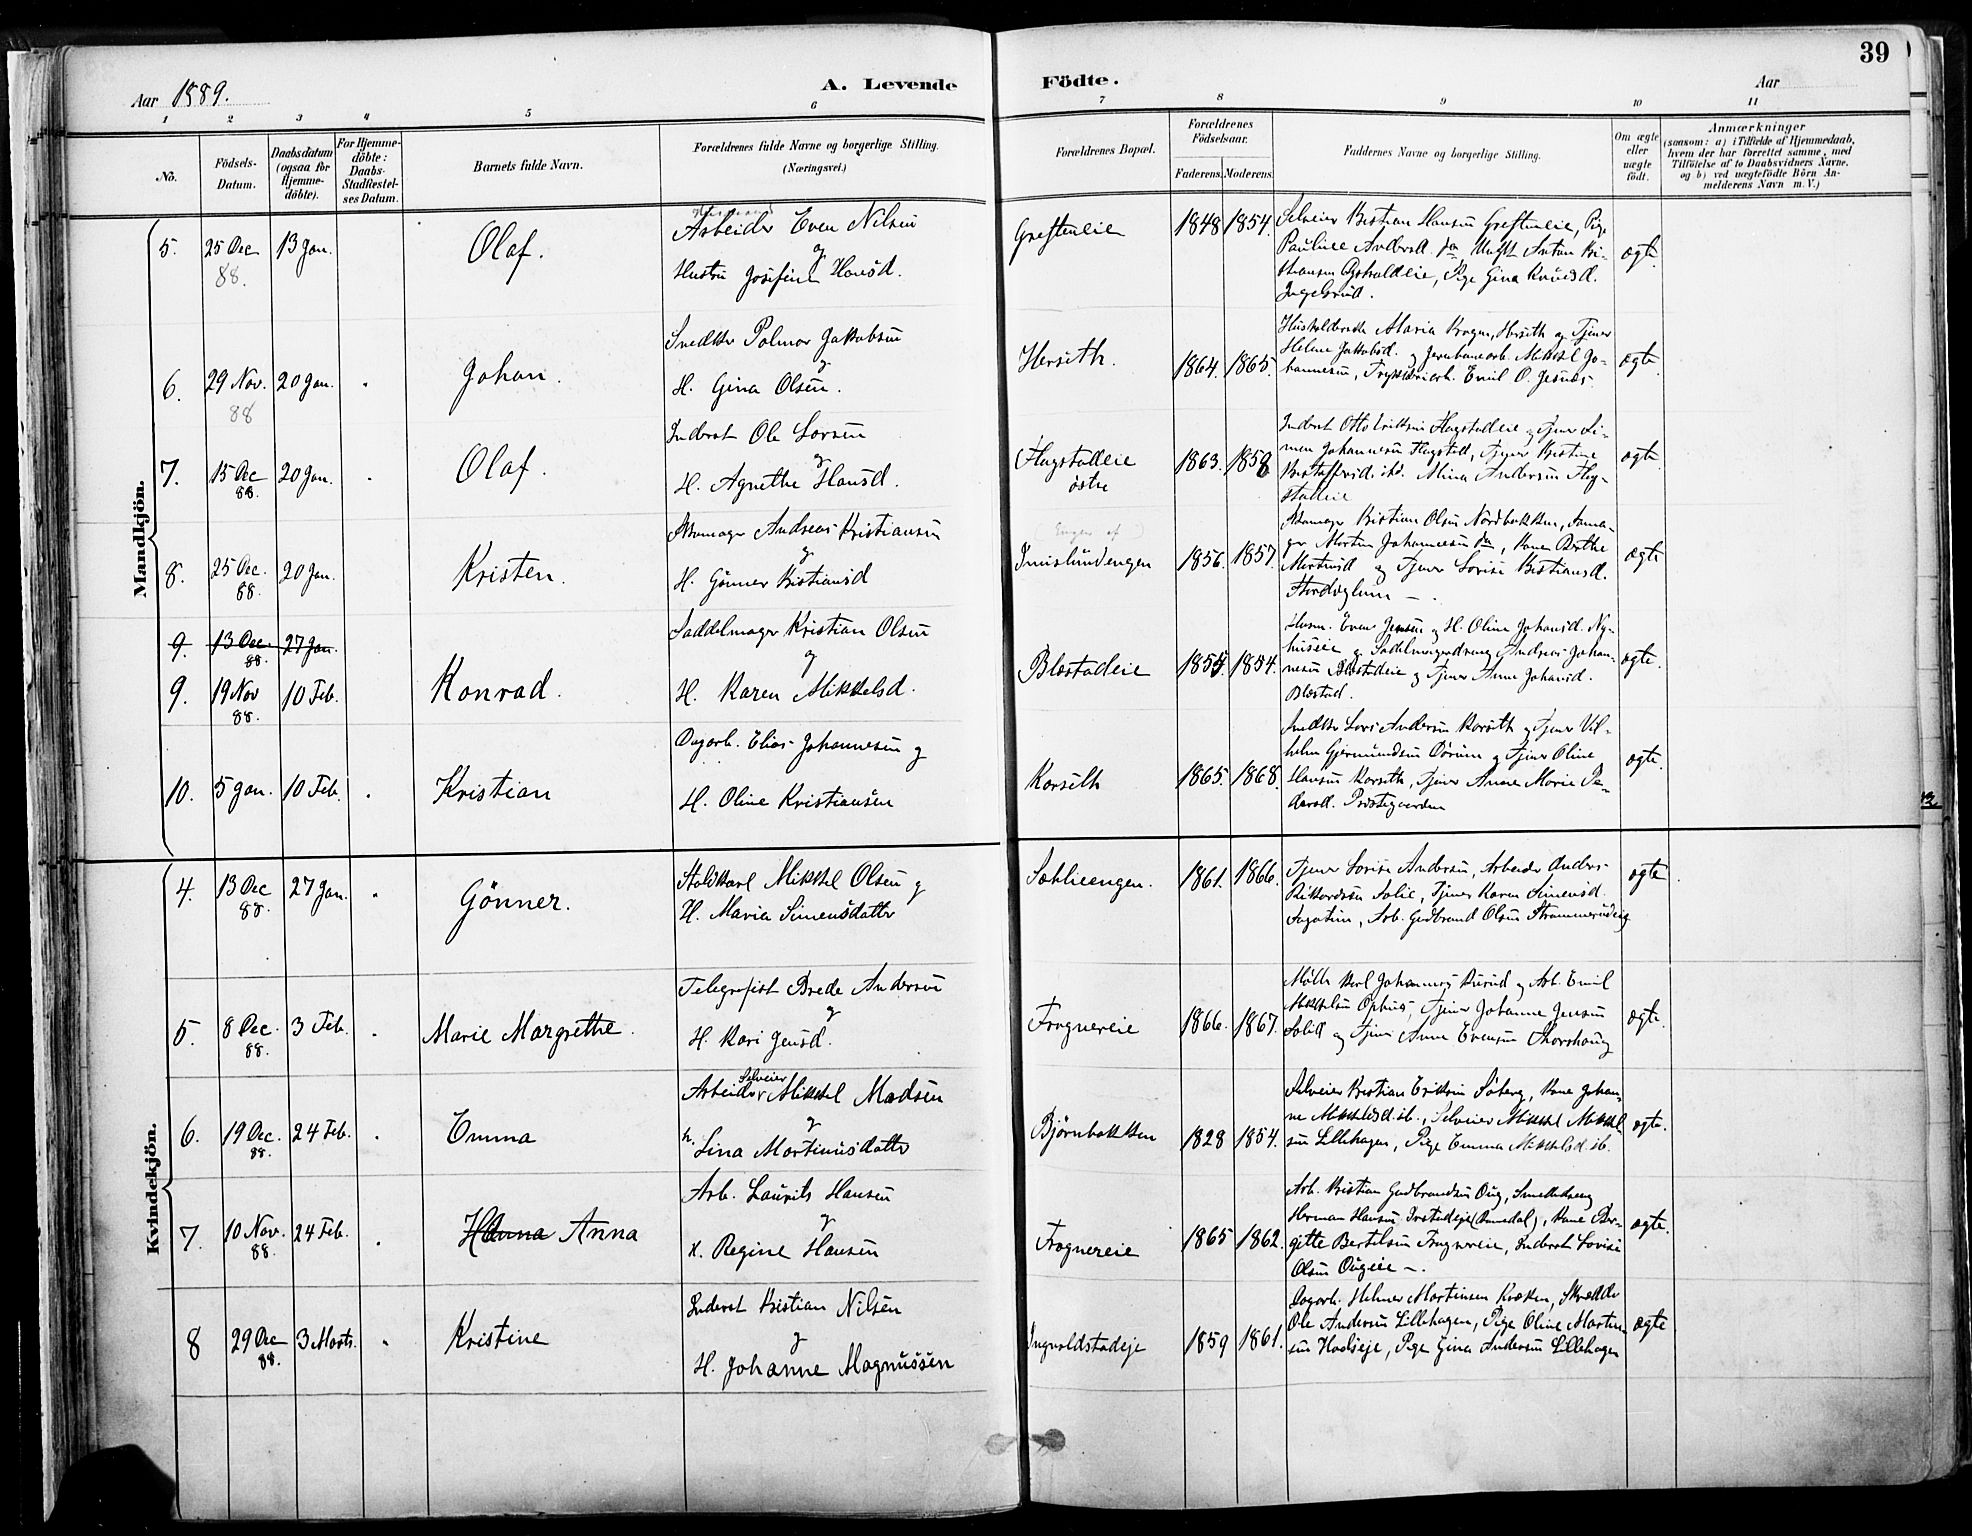 39
Aar 1889.
A. Levende
Födte.
Aar
1 2 3 4 5 6 7 8 9 10 11
No.
Födsels-
Datum.
Daabsdatum
(ogsaa for
Hjemme-
döbte).
For Hjemme-
döbte:
Daabs-
Stadfæstel-
ses Datum.
Barnets fulde Navn.
Forældrenes fulde Navne og borgerlige Stilling.
(Næringsvei.)
Forældrenes Bopæl.
Forældrenes
Födselsaar.
Faderens. Moderens.
Faddernes Navne og borgerlige Stilling.
Om ægte
eller
uægte
födt.
Anmærkninger
(saasom: a) i Tilfælde af Hjemmedaab,
hvem der har forrettet samme, med
Tilföielse af to Daabsvidners Navne.
og b) ved uægtefödte Börn An-
melderens Navn m. V.)
Mandkjön.
5. 25 Dec 88. 13 Jan. Olaf.
Arbeider Even Nilsen
og
Hustru Josefine Hansd.
Greftenleie 1848 1854.
Selveier Kristian Hansen Greftenleie, Pige
Pauline Andersd.
Pige Gina Knudsd.
Ingelsrud.
ægte.
6. 29 Nov. 88 20 Jan. " Johan.
Snedker Palmar Jakobsen
og
H. Gina Olsen.
Hersæth. 1864. 1865.
Husholderske Maria Krogen, Hersæth og Tjener
Helene Jakobsd. og Jernbanearb. Mikkel Jo-
hannesen, Emil O. Jesnes.
ægte.
7. 15 Dec 88. 20 Jan. " Olaf.
Inderst Ole Larsen
og
H. Agnethe Hansd.
Flagstadeie
østre
1863. 1858
Inderst Otto Eriksen Flagstadeie og Tjener Si-
men Johannesen Flagstad, Tjener Kristine
Kristoffersd. ibd. Mina Andersen Flag-
stadeie
ægte.
8. 25 Dec. 88. 20 Jan. Kristen.
Skomager Andreas Kristiansen
og
H. Gønner Kristiansd
(Enger af)
Imislundengen 1856. 1857.
Skomager Kristian Olsen Nordbakken, Skoma-
ger Morten Johannesen, Kone Berthe
Mortensd og Tjener Lovise Kristiansd.
ægte
9. 13 Dec. 88. 27 Jan.
9. 19 Nov 88. 10 Feb. Konrad.
Saddelmager Kristian Olsen
og
H. Karen Mikkelsd.
Blæstadeie 1855. 1854.
Husm. Even Jensen og H. Oline Johansd. Ny-
huseie og Sadelmagerdreng Andreas Johan-
nesen Blæstadeie og Tjener Anne Johansd.
Blæstad.
ægte.
10. 5 Jan. 10 Feb. " Kristian
Dagarb. Elias Johannesen og
H. Oline Kristiansen
Korsæth 1865. 1868.
Snedker Lars Andersen Korsæth og Tjener Vil-
helm Gjermundsen Dørum og Tjener Oline
Hansen Korsæth, Tjener Anne Marie Pe-
dersd. Præstegaarden
ægte.
Kvindekjön.
4. 13 Dec 88. 27 Jan. " Gönner.
Staldkarl Mikkel Olsen og
H. Maria Simensdatter
Sohlieengen. 1861. 1866.
Tjener Lovise Andersen, Arbeider Anders
Rikkardsen Solie, Tjener Karen Simensd.
Arb. Gudbrand Olsen
ægte
5. 8 Dec. 88. 3 Feb. " Marie Margrethe.
Telegrafist Brede Andersen
og
H. Kari Jensd.
Frognereie 1866. 1867.
Karl Johannes og Arb. Emil
Mikkelsen Ophus, Tjener Johanne Jensen
og Tjener Anne Evensen Thorshoug
ægte.
6. 19 Dec. 88. 24 Feb. " Emma
Selveier
Arbeider Mikkel Madsen
og
H. Lina Martinusdatter
Bjørnbakken 1828 1854.
Selveier Kristian Eriksen Søberg, Kone Johan-
ne Mikkelsd. ib., Selveier Mikkel Mikkel-
sen Lillehagen, Pige Emma Mikkelsd. ib.
ægte.
7. 10 Nov. 88. 24 Feb. " Hanna Anna
Arb. Laurits Hansen
og
H. Regine Hansen
Frognereie 1865 1862.
Arb. Kristian Gudbrandsen Oug, Smeddreng
Herman Hansen (Romedal), Kone Ber-
gitte Bertelsen Frognereie, Inderst Lovise
Olsen Ougeie.
ægte.
8 29 Dec 88. 3 Marts. " Kristine
Inderst Kristian Nilsen
og
H. Johanne Magnussen
Ingvoldstadeje 1859 1861.
Dagarb. Helmer Martinsen Kræken, Skrædder
Ole Andersen Lillehagen, Pige Oline Martin-
sen Hodseje, Pige Gina Andersen Lillehagen
ægte